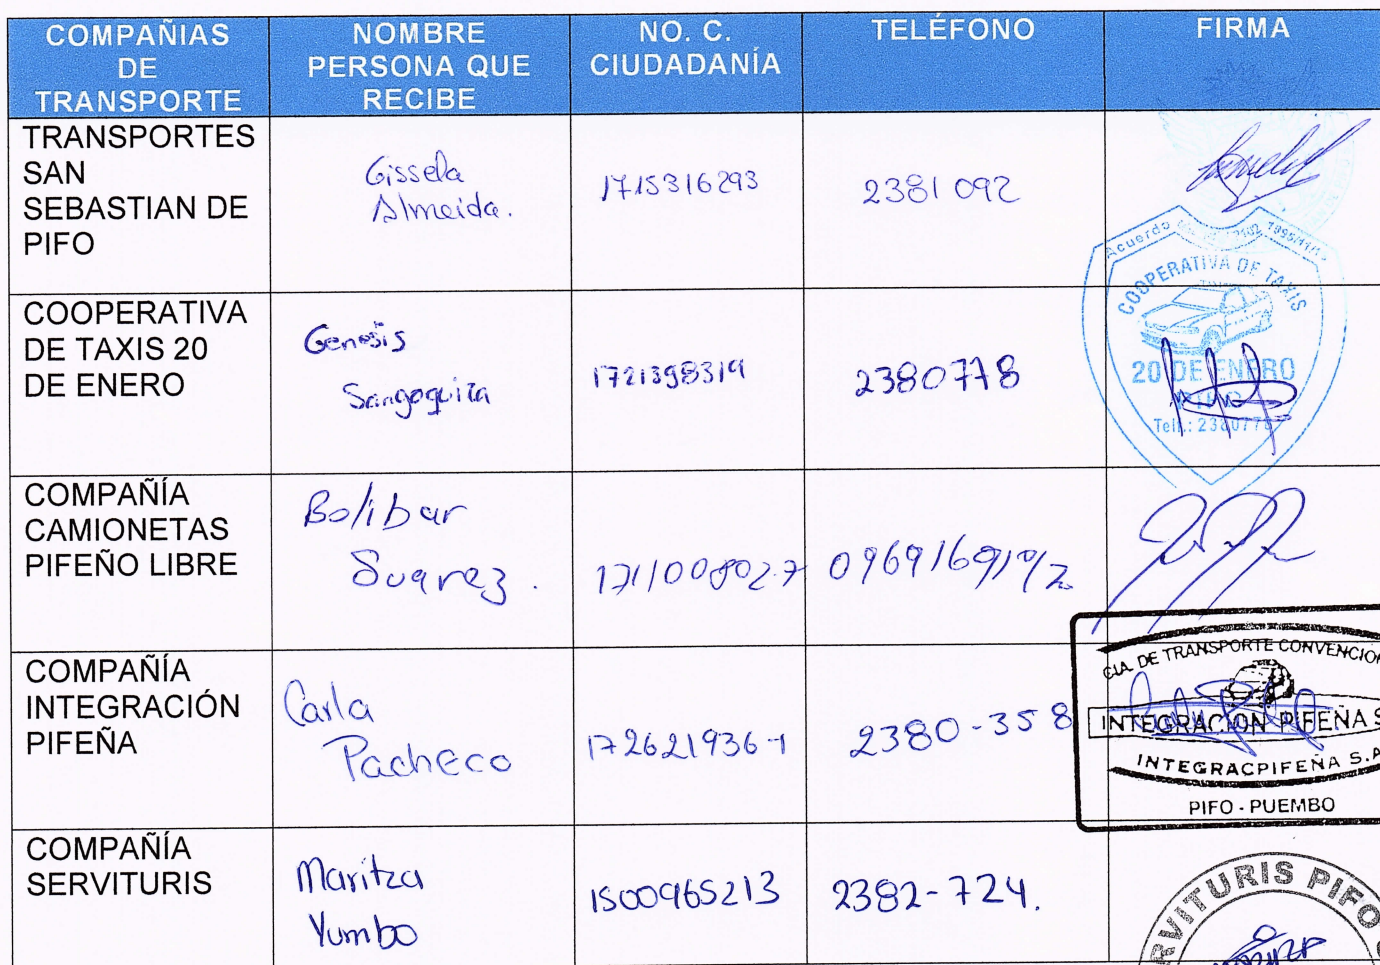 COMPAÑIAS
DE
TRANSPORTE
NOMBRE
PERSONA QUE
RECIBE
NO. C.
CIUDADANÍA
TELÉFONO
FIRMA
TRANSPORTES
SAN
SEBASTIAN DE
PIFO
Gissela
Almeida.
1715316293
2381092
COOPERATIVA
DE TAXIS 20
DE ENERO
Genesis
Sangoquiza
1721398319
2380778
Acuerdo
COOPERATIVA DE TAXIS
20 DE ENERO
PIFO
Telf.: 2380778
COMPAÑÍA
CAMIONETAS
PIFEÑO LIBRE
Bolibar
Suarez.
1711008027
COMPAÑÍA
INTEGRACIÓN
PIFEÑA
Carla
Pacheco
172621936-1
2380-358
CIA. DE TRANSPORTE CONVENCION
INTEGRACION PIFEÑA S
INTEGRACPIFEÑA S.A
PIFO - PUEMBO
COMPAÑÍA
SERVITURIS
Maritza
Yumbo
1500965213
2382-724.
RVITURIS PIFO